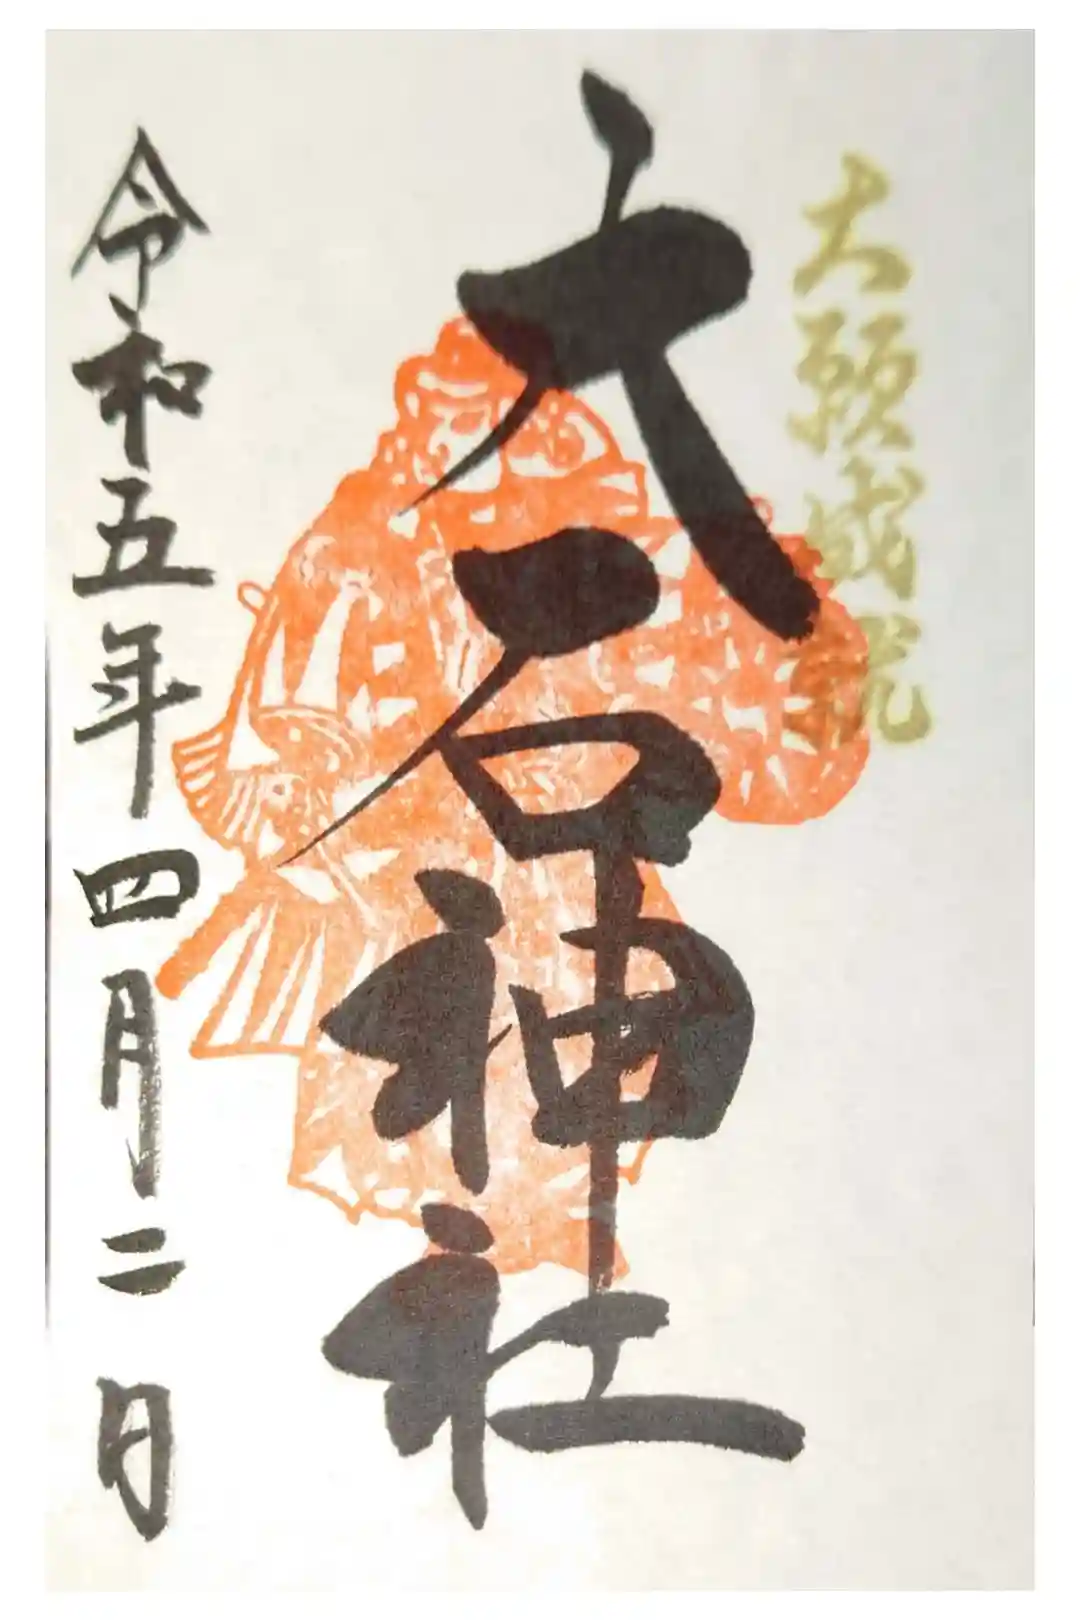 大願成就
大石神社
令和五年四月二日